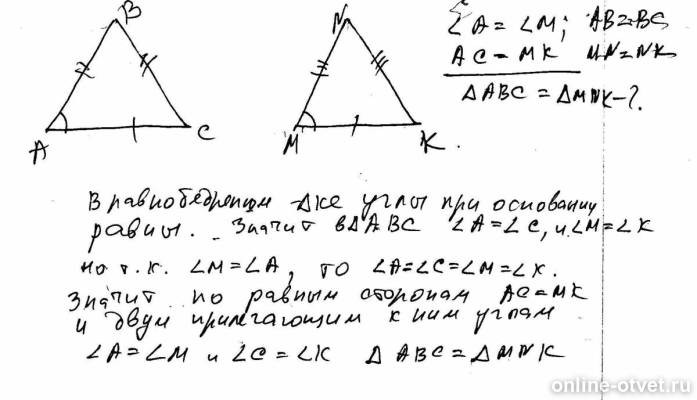 B
N
∠A = ∠M; AB=BC
AC = MK MN=NK
ΔABC = ΔMNK-?
A
C
M
K.
В равнобедренном Δке углы при основании
равны. Значит в ΔABC ∠A=∠C, и ∠M=∠K
но т.к. ∠M=∠A, то ∠A=∠C=∠M=∠K.
Значит по равным сторонам AC=MK
и двум прилегающим к ним углам
∠A=∠M и ∠C=∠K Δ ABC=ΔMNK
online-otvet.ru